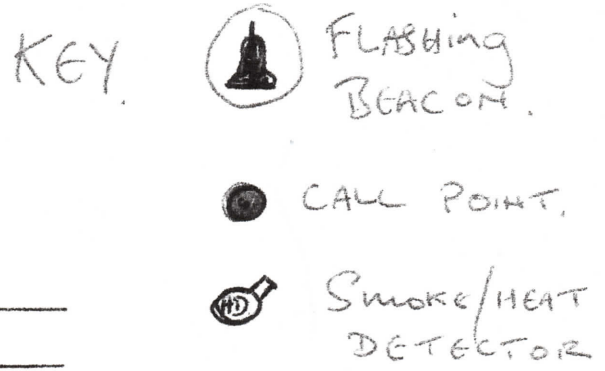 KEY.
FLASHing
BEACON.
CALL POINT.
HD
SMOKE/HEAT
DETECTOR